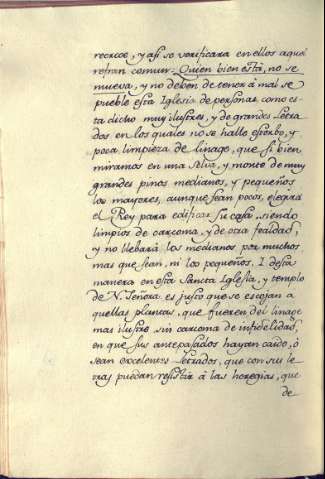 recrece, y assi se verificara en ellos aquel
refran comun: Quien bien està, no se
mueva, y no deben detenerà mas se
pueble esta Iglesia de personas como es-
ta dicho muy ilustres, y de grandes letra
dos en los quales no se halle estorbo, y
poca limpieza de linage, que si bien
miramos en una selva, y monte de muy
grandes pinos medianos, y pequeños
los mayores, aunque sean pocos, elegirá
el Rey para edificar su casa, siendo
limpios de carcoma, y de otra fealdad,
y no llebará los medianos por muchos
mas que sean, ni los pequeños. I desta
manera en esta Sancta Iglesia, y templo
de N. Señora es justo que se escojan a-
quellas plantas, que fueren del linage
mas ilustre sin carcoma de infidelidad,
en que sus antepasados hayan caido, ò
sean excelentes Letrados, que con sus le-
tras puedan resistir à las heregias, que
de